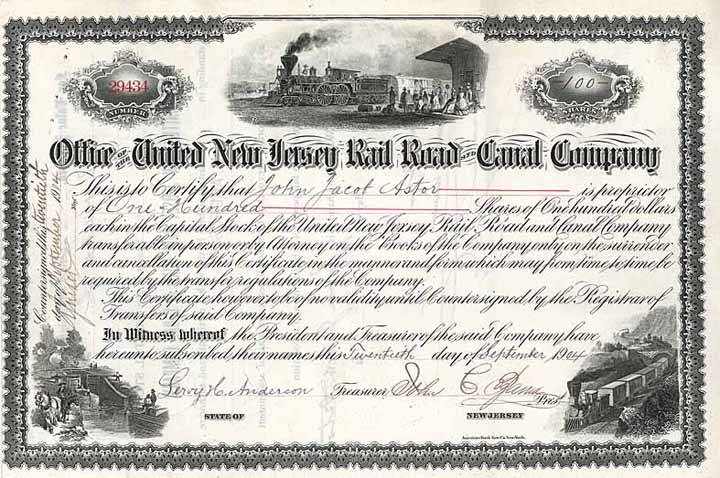 29434
NUMBER
100
SHARES
Office OF THE United New Jersey Rail Road AND Canal Company
This is to Certify that John Jacob Astor is proprietor
of One Hundred Shares of One hundred dollars
each in the Capital Stock of the United New Jersey Rail Road and Canal Company
transferable in person or by Attorney on the Books of the Company only on the surrender
and cancellation of this Certificate in the manner and form which may from time to time be
required by the transfer regulations of the Company.
This Certificate however to be of no validity until Countersigned by the Registrar of
Transfers of said Company.
In Witness whereof the President and Treasurer of the said Company have
hereunto subscribed their names this Twentieth day of September 1904
Leroy H. Anderson Treasurer John C. Prest
STATE OF NEW JERSEY
American Bank Note Co. New York.
Countersigned this twentieth
day of September 1904